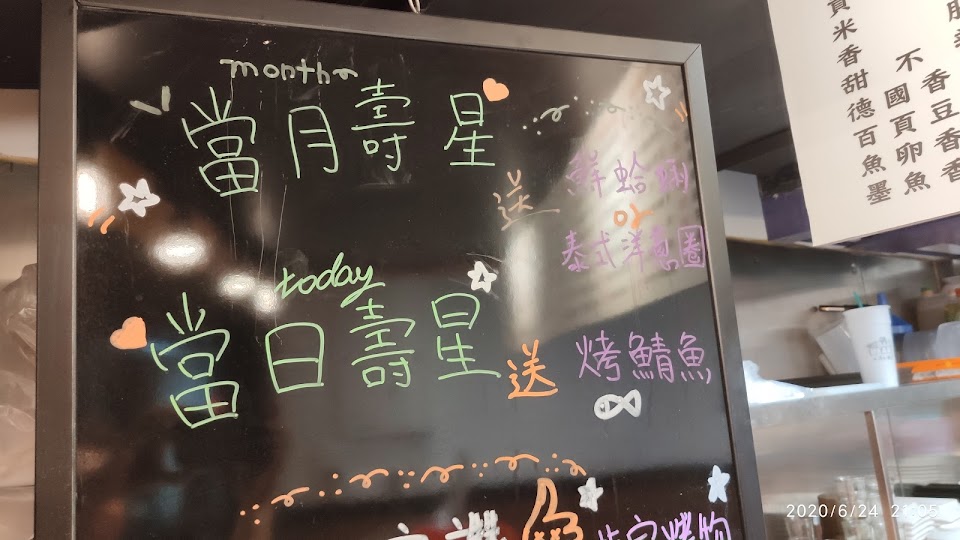 month
當月壽星
送 鮮蛤蜊
or
泰式洋蔥圈
today
當日壽星 送 烤鯖魚
指定烤物
不國頁卵魚
香豆香香
米香甜德百魚墨
2020/6/24 21:05